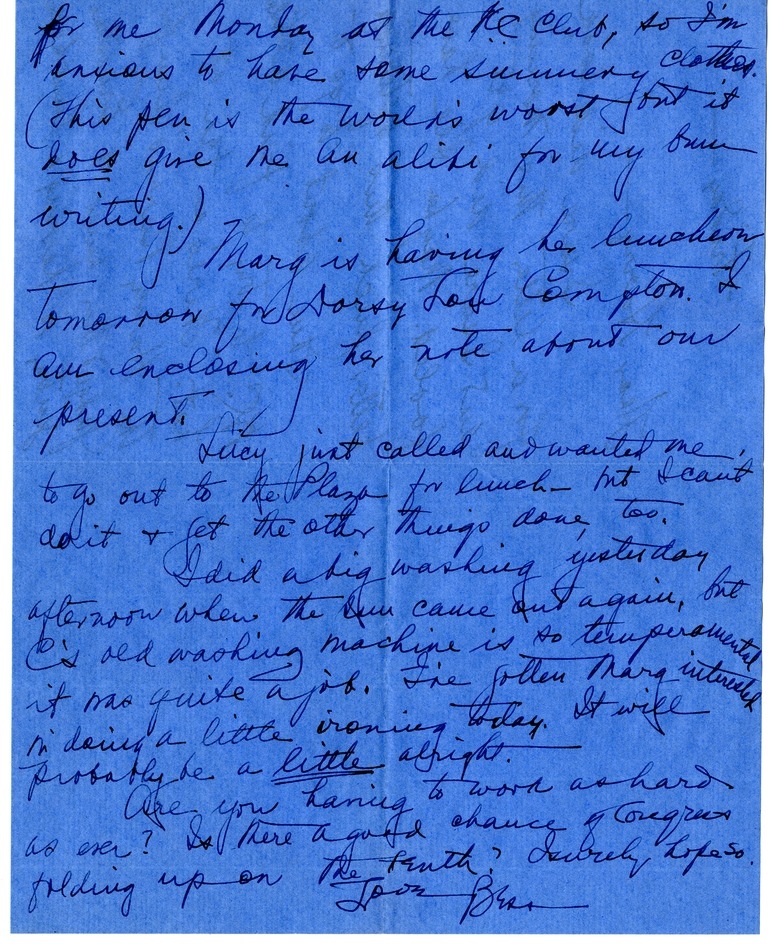 for me Monday at the KC Club, so I'm
anxious to have some summery clothes.
(This pen is the world's worst but it
does give me an alibi for my bum
writing.)
Marg is having her luncheon
tomorrow for Dorsy Lou Compton. I
am enclosing her note about our
present.
Lucy just called and wanted me
to go out to the Plaza for lunch - but I can't
do it & get the other things done, too.
I did a big washing yesterday
afternoon when the sun came out again, but
C's old washing machine is so temperamental
it was quite a job. I've gotten Marg interested
in doing a little ironing today. It will
probably be a little alright.
Are you having to work as hard
as ever? Is there a good chance of Congress
folding up on the tenth? I surely hope so.
Love Bess